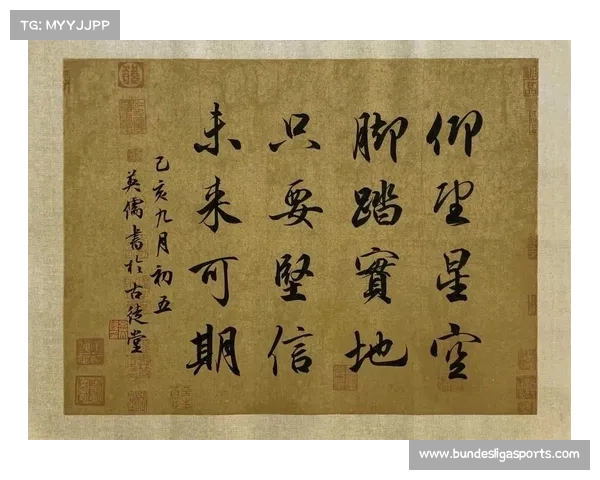 TG: MYYJJPP
仰望星空
脚踏實地
只要堅信
未来可期
乙亥九月初五
英儒書於古徒堂
www.bundesligasports.com